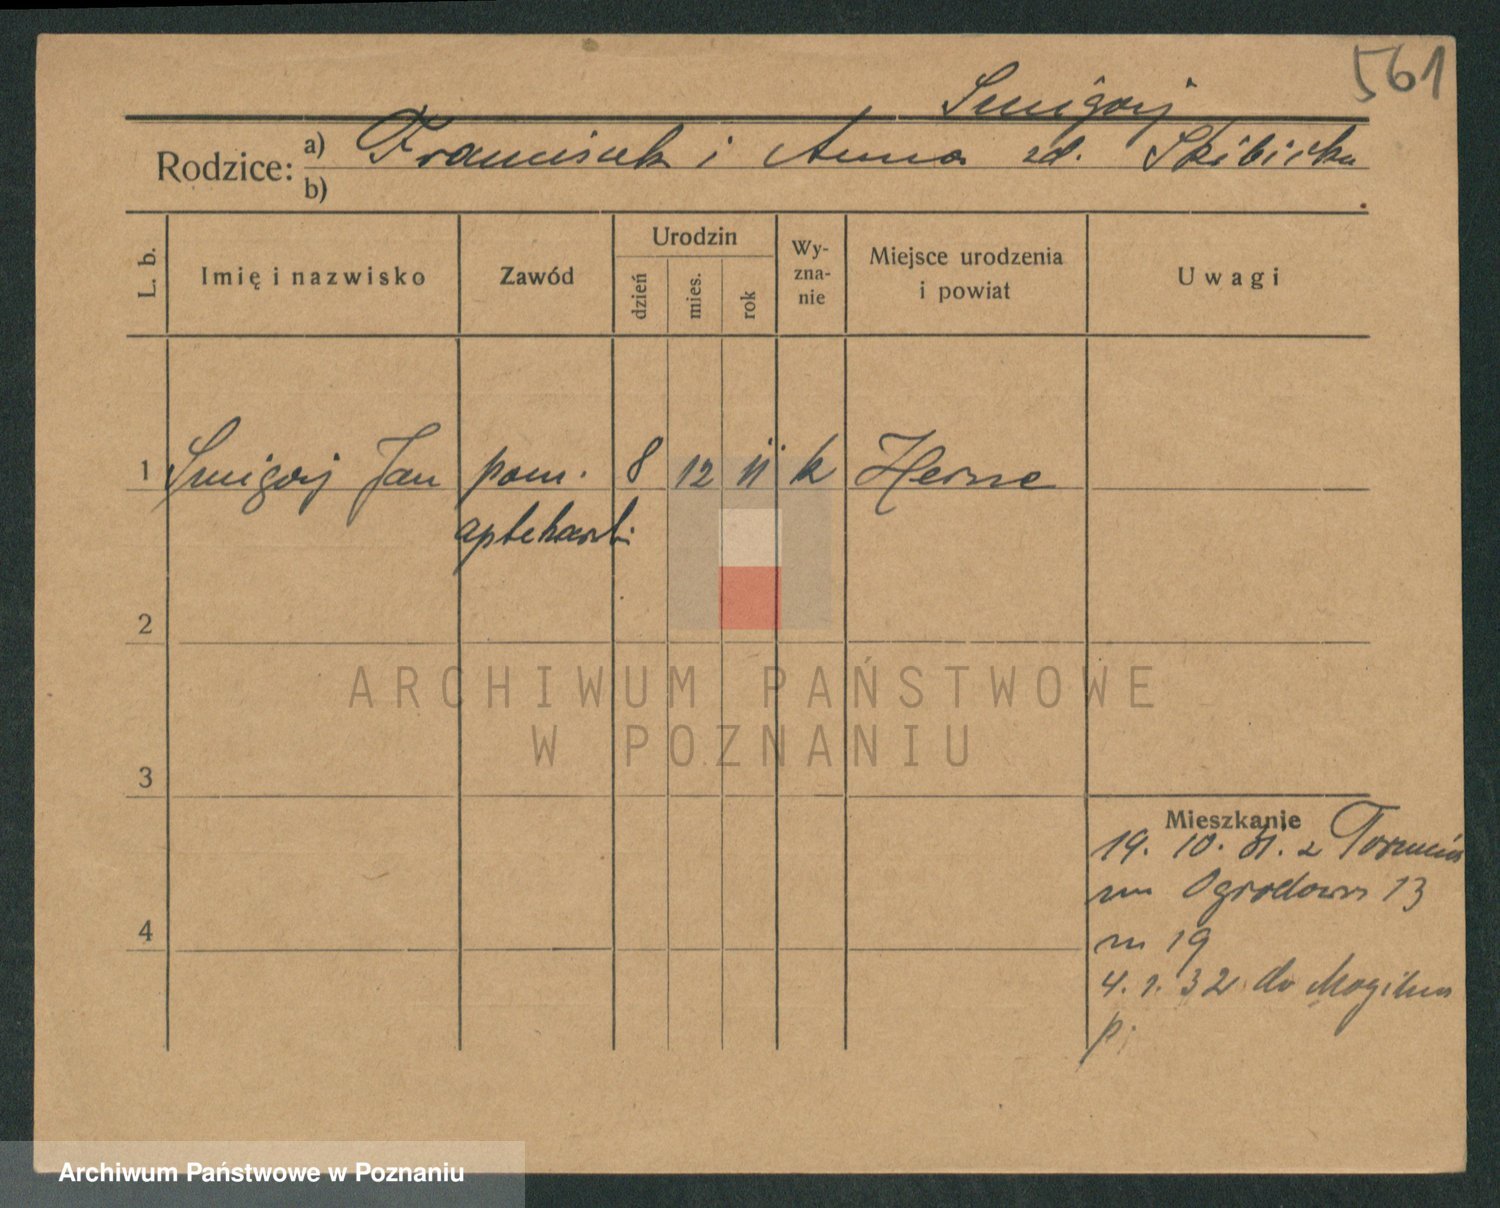 561
Smigorj
Rodzice: a) Franciszek i Anna zd. Skibicka
b)
L. b. Imię i nazwisko Zawód Urodzin dzień mies. rok Wy-zna-nie Miejsce urodzenia i powiat Uwagi
1 Smigorj Jan pom. 8 12 11 k Herne
aptekarski
2
ARCHIWUM PAŃSTWOWE
W POZNANIU
3
Mieszkanie
19. 10. 31. z Torunia
Ogrodowa 13
m 19
4. 1. 32 do Mogilna
p.
4
Archiwum Państwowe w Poznaniu